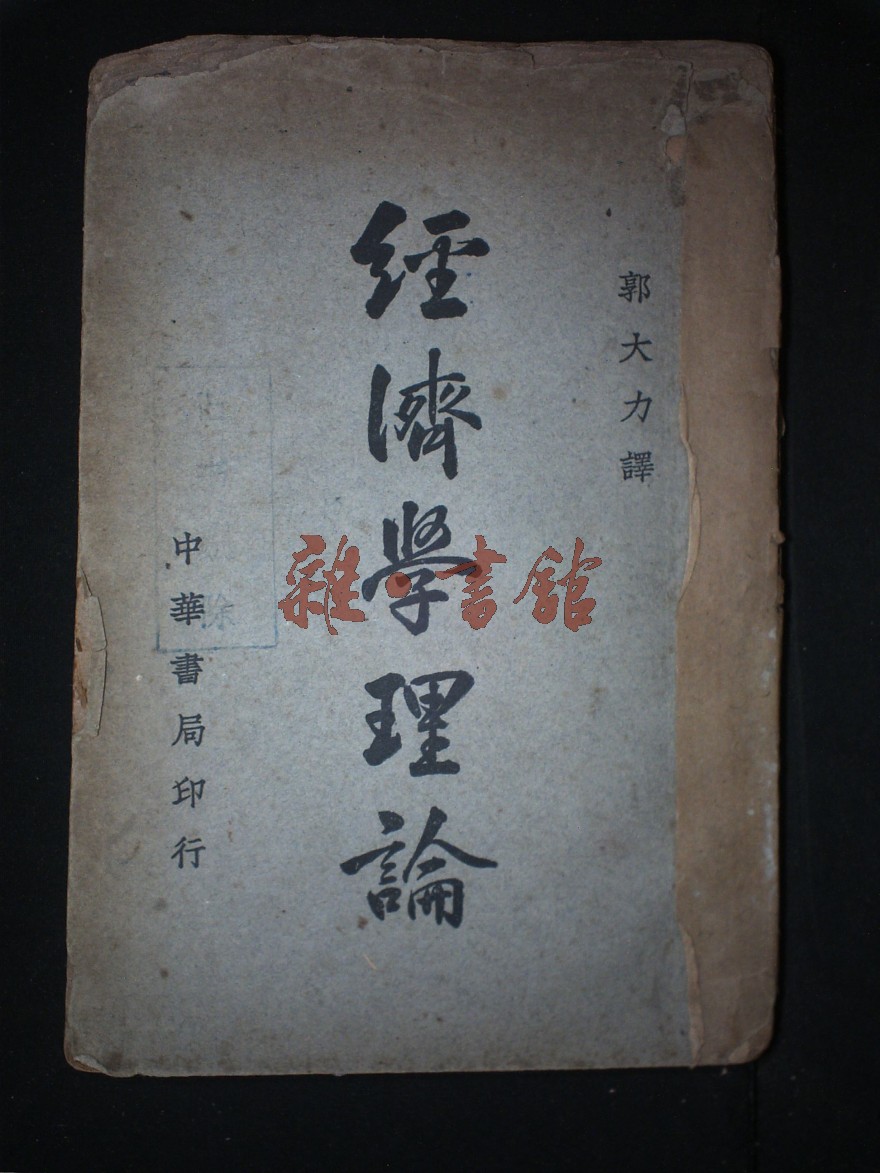 郭大力譯
經濟學理論
中華書局印行
雜·書館